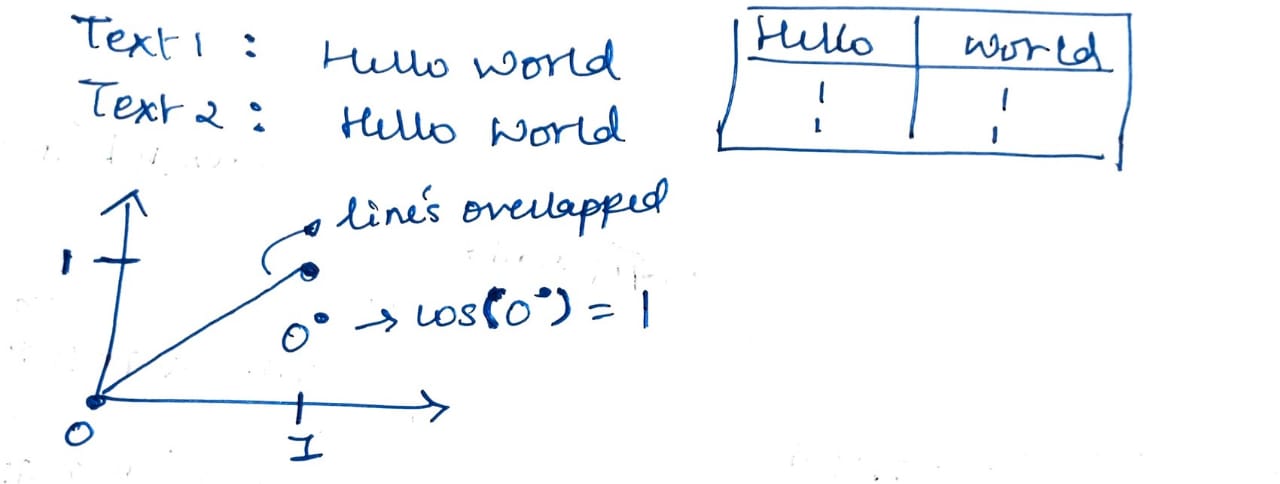 Text 1 : Hello world
Text 2 : Hello World
Hello world
1 1
1 1
line's overlapped
1
0° → cos(0°) = 1
0
1